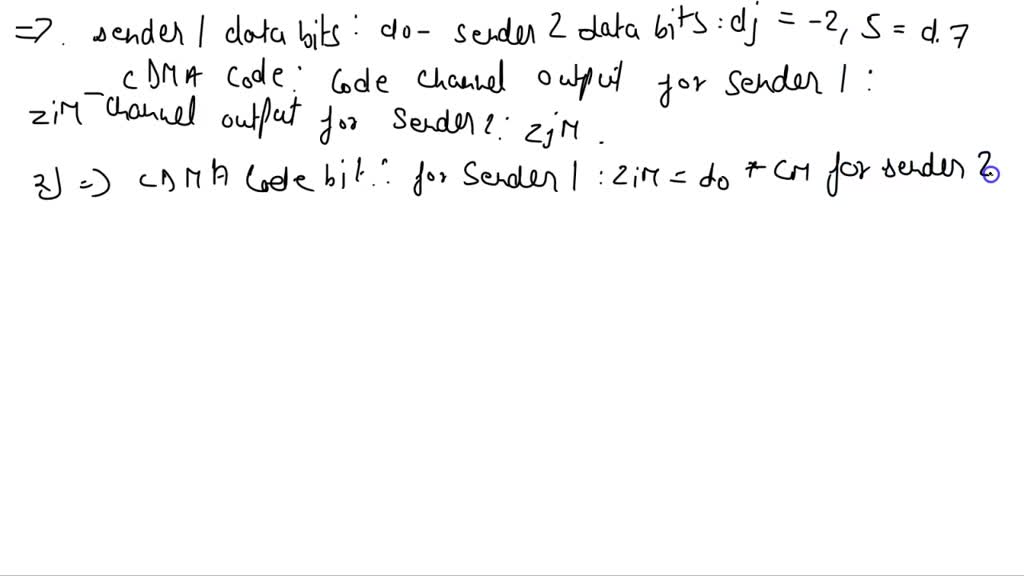 => sender 1 data bits : do - sender 2 data bits : dj = -2, S = d.7
CDMA Code : Code channel output for sender 1 :
ziM - channel output for Sender 2 : zjM .
2) => CDMA Code bit : for Sender 1 : ziM = do * CM for sender 2